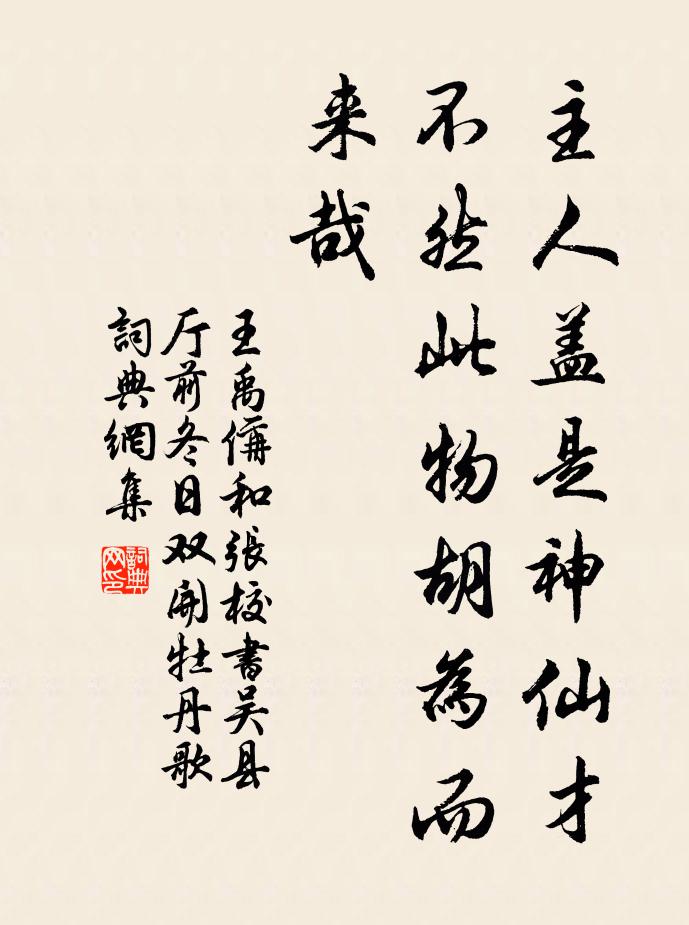 主人盖是神仙才
不然此物胡為而
来哉
王禹偁和張校書吴县
厅前冬日双開牡丹歌
詞典網集
詞典
网印